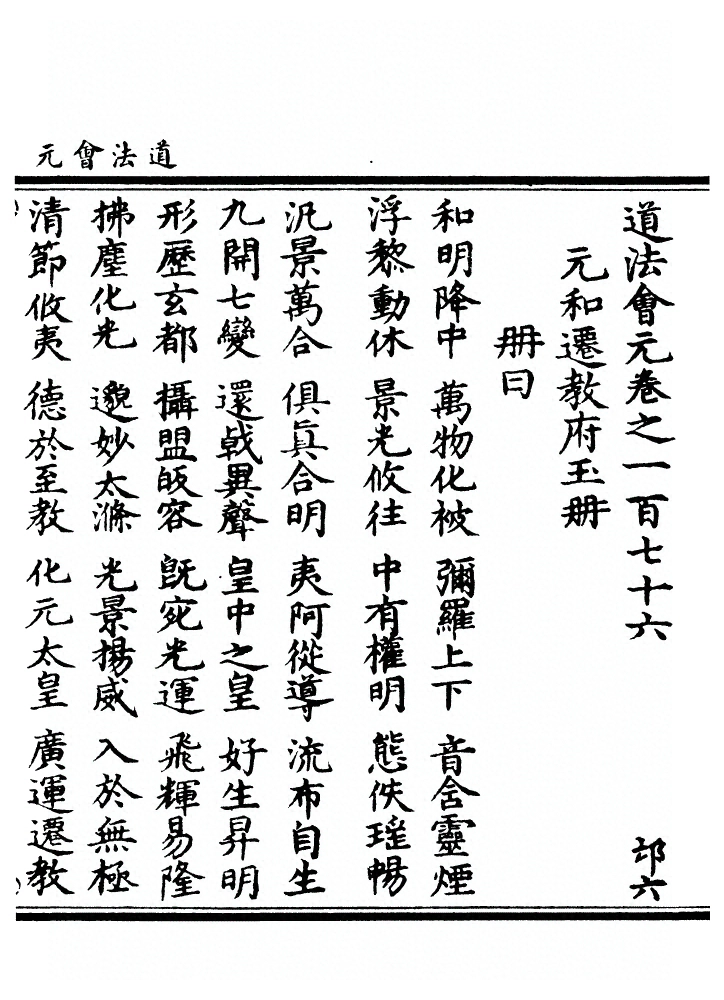 道法會元
道法會元卷之一百七十六 邙六
元和遷教府玉冊
冊曰
和明降中 萬物化被 彌羅上下 音舍靈煙
浮黎動休 景光攸往 中有權明 態佚瑤暢
汎景萬合 俱真合明 夷阿從導 流布自生
九開七變 還戟異聲 皇中之皇 好生昇明
形歷玄都 攝盟皈容 既宛光運 飛輝易隆
拂塵化光 邈妙太滌 光景揚威 入於無極
清節攸夷 德於至教 化元太皇 廣運遷教